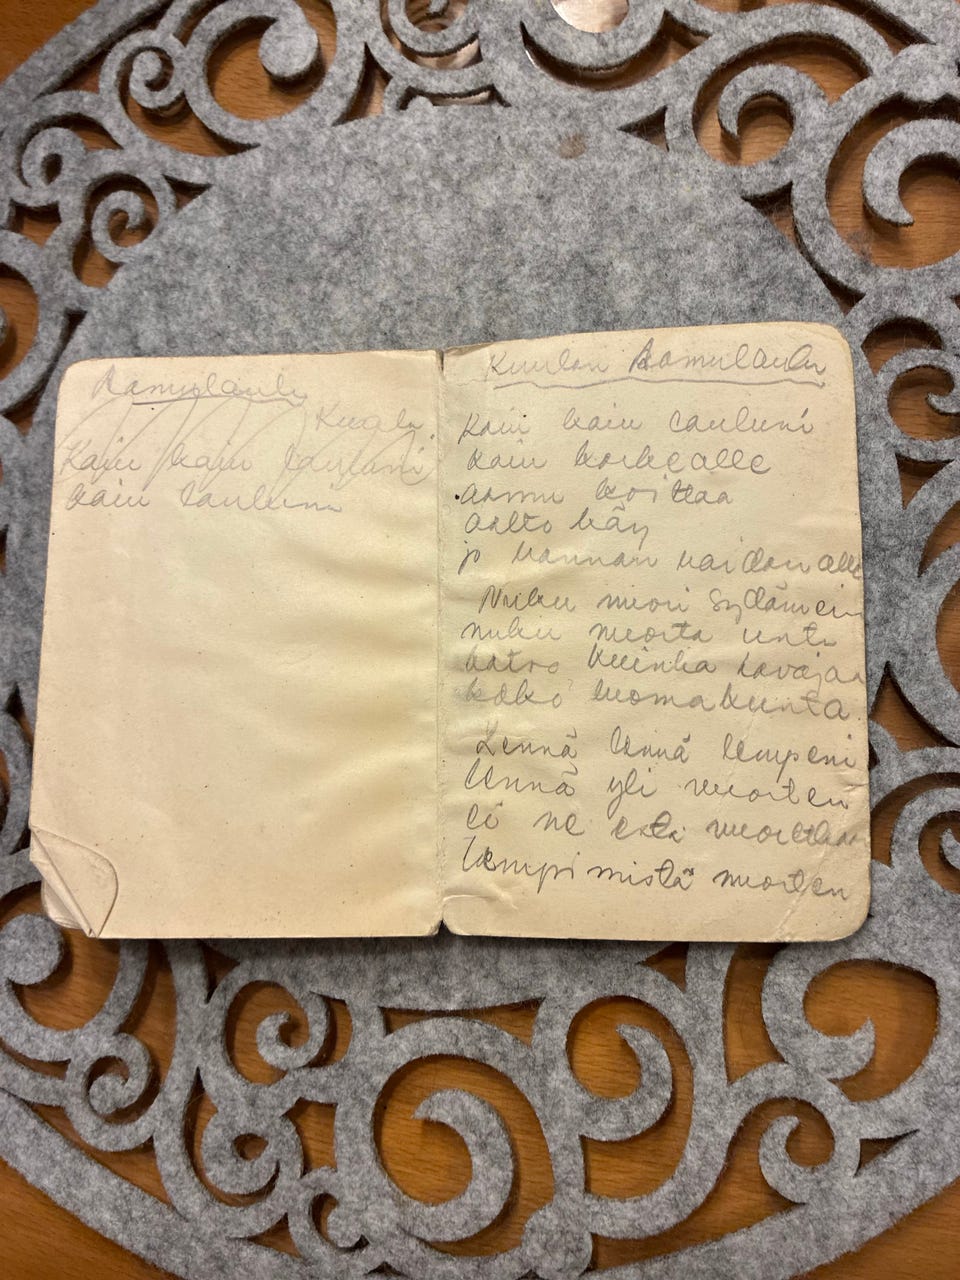 Aamulaulu
Kuula
Kaiu kaiu lauluni
kaiu lauluni
Kuulan Aamulaulu
Kaiu kaiu lauluni
kaiu korkealle
aamu koittaa
aalto käy
jo rannan raidan alle
Nuku nuori sydämein
nuku nuorta unta
katso kuinka havajaa
koko luomakunta.
Lennä lennä lempeni
lennä yli vuorten
ei ne estä vuoretkaan
lempimistä nuorten